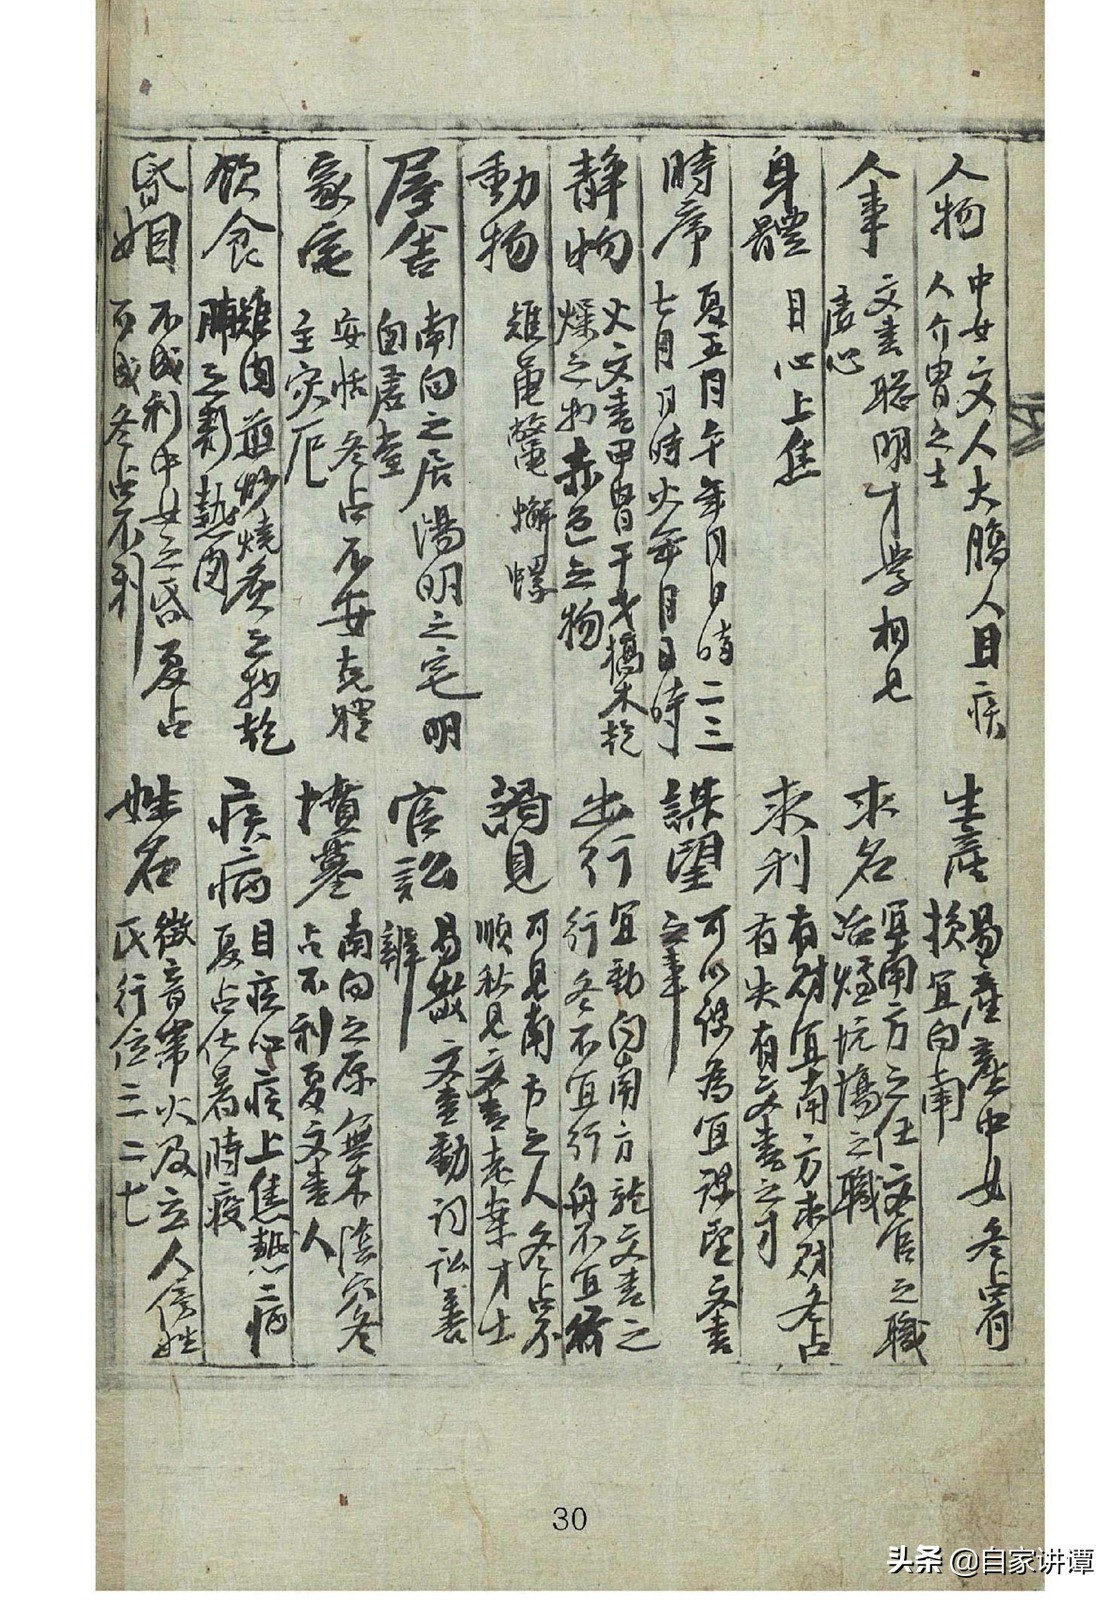 人物 中女文人大腹人目疾
人介冑之士
人事 文書聰明才學相見
虛心
身體 目心上焦
時序 夏五月午年月日時二三
七月日時火年月日時
静物 火文書甲冑干戈槁木乾
燥之物赤色之物
動物 雉龜鱉蠏螺
屋舍 南向之居陽明之宅明
窗虛堂
家宅 安恬冬占不安克體
主灾厄
飲食 雉肉煎炒燒炙之物乾
脯之熱肉
昏姻 不成利中女之昏夏占
可成冬占不利
生產 易產產中女冬占有
損宜向南
求名 宜南方之任文官之職
冶爐坑塲之職
求利 有財宜南方求財冬占
有失有文書之才
謀望 可以謀為宜謀望文書
之事
出行 宜動向南方就文書之
行冬不宜行舟不宜
謁見 可見南方之人冬占不
順秋見文書考案才士
官訟 易散文書動詞訟善
辨
墳墓 南向之原無木陰穴冬
占不利夏文書人
疾病 目疾心疾上焦熱病
夏占伏暑時疫
姓名 徵音帶火及立人傍姓
氏行位三二七
30
头条 @自家讲谭